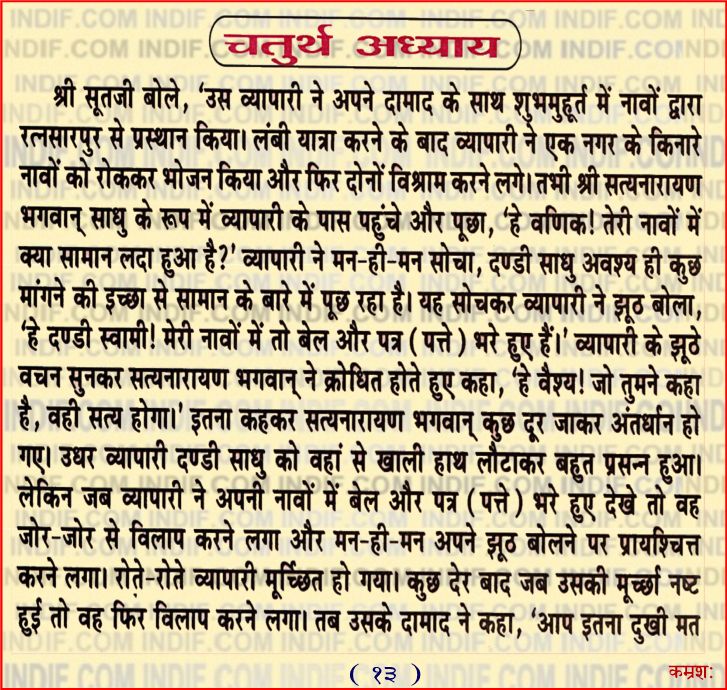 चतुर्थ अध्याय
श्री सूतजी बोले, 'उस व्यापारी ने अपने दामाद के साथ शुभमुहूर्त में नावों द्वारा
रत्नसारपुर से प्रस्थान किया। लंबी यात्रा करने के बाद व्यापारी ने एक नगर के किनारे
नावों को रोककर भोजन किया और फिर दोनों विश्राम करने लगे। तभी श्री सत्यनारायण
भगवान् साधु के रूप में व्यापारी के पास पहुंचे और पूछा, 'हे वणिक! तेरी नावों में
क्या सामान लदा हुआ है?' व्यापारी ने मन-ही-मन सोचा, दण्डी साधु अवश्य ही कुछ
मांगने की इच्छा से सामान के बारे में पूछ रहा है। यह सोचकर व्यापारी ने झूठ बोला,
'हे दण्डी स्वामी! मेरी नावों में तो बेल और पत्र (पत्ते) भरे हुए हैं।' व्यापारी के झूठे
वचन सुनकर सत्यनारायण भगवान् ने क्रोधित होते हुए कहा, 'हे वैश्य! जो तुमने कहा
है, वही सत्य होगा।' इतना कहकर सत्यनारायण भगवान् कुछ दूर जाकर अंतर्धान हो
गए। उधर व्यापारी दण्डी साधु को वहां से खाली हाथ लौटाकर बहुत प्रसन्न हुआ।
लेकिन जब व्यापारी ने अपनी नावों में बेल और पत्र (पत्ते) भरे हुए देखे तो वह
जोर-जोर से विलाप करने लगा और मन-ही-मन अपने झूठ बोलने पर प्रायश्चित्त
करने लगा। रोते-रोते व्यापारी मूर्च्छित हो गया। कुछ देर बाद जब उसकी मूर्च्छा नष्ट
हुई तो वह फिर विलाप करने लगा। तब उसके दामाद ने कहा, 'आप इतना दुखी मत
( १३ )
कम्रश: